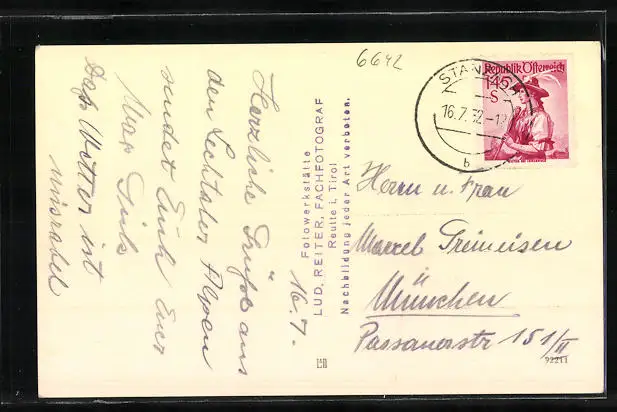 6642
16.7.
Herzliche Grüße aus
den Lechtaler Alpen
sendet Euch Euer
Max
Das Wetter ist
miserabel
Fotowerkstätte
LUD. REITER, FACHFOTOGRAF
Reutte i. Tirol
Nachbildung jeder Art verboten.
STANZACH
16.7.52
b
Republik Österreich
1·45
S
Herrn u. Frau
Marcel Greineisen
München
Passauerstr 151/II
92211